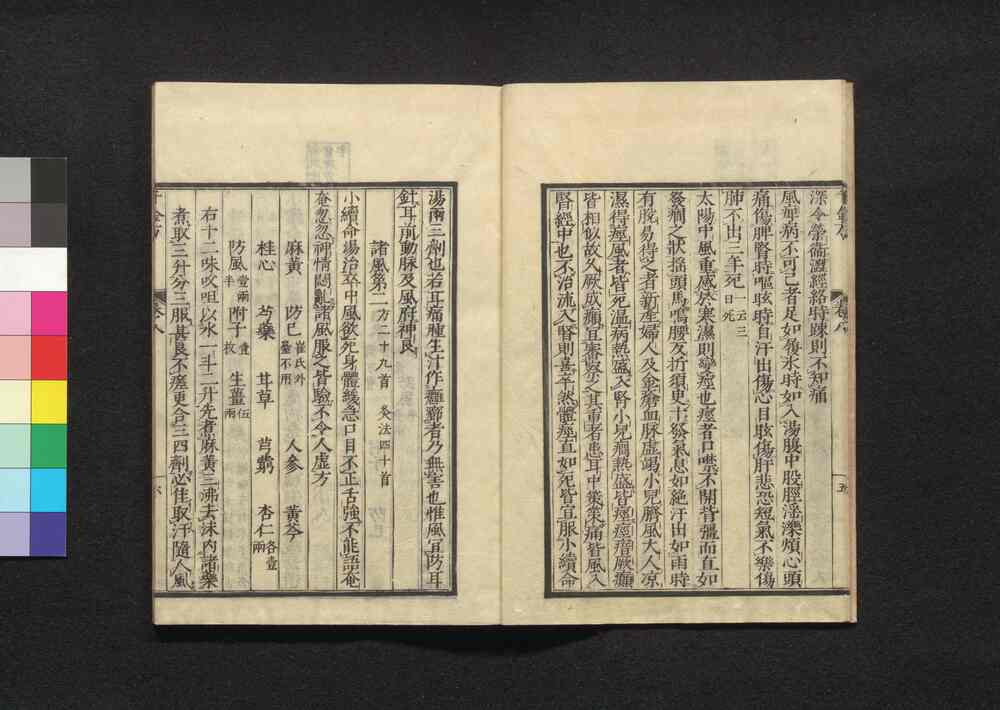 深令榮衞澀經絡時踈則不知痛
風華病不可已者足如履氷時如入湯腹中股脛淫濼煩心頭
痛傷脾腎時嘔眩時自汗出傷心目眩傷肝悲恐短氣不樂傷
肺不出三年死一云三日死
太陽中風重感於寒濕則變痙也痙者口噤不開背強而直如
發癇之狀搖頭馬鳴腰反折須更十發氣息如絕汗出如雨時
有脫易得之者新產婦人及金瘡血脉虛竭小兒臍風大人凉
濕得痙風者皆死温病熱盛入腎小兒癇熱盛皆痙痙瘖厥癲
皆相似故久厥成癲宜審察之其重者患耳中策策痛皆風入
腎經中也不治流入腎則喜卒然體痙直如死皆宜服小續命
湯兩三劑也若耳痛腫生汁作癰癤者乃無害也惟風宜防耳
針耳前動脉及風府神良
諸風第二方二十九首 灸法四十首
小續命湯治卒中風欲死身體緩急口目不正舌強不能語奄
奄忽忽神情悶亂諸風服之皆驗不令人虛方
麻黃 防巳崔氏外臺不用 人參 黃芩
桂心 芍藥 甘草 芎藭 杏仁各壹兩
防風壹兩半 附子壹枚 生薑伍兩
右十二味㕮咀以水一斗二升先煮麻黃三沸去沫內諸藥
煮取三升分三服甚良不瘥更合三四劑必佳取汗隨人風
五
六